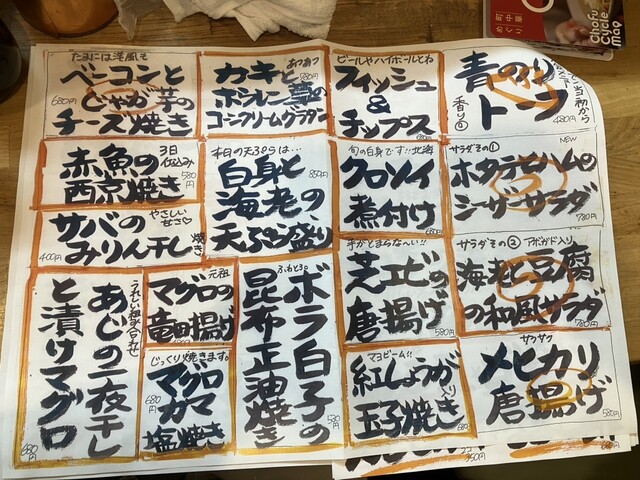 たまには洋風も
ベーコンと
じゃが芋の
チーズ焼き
680円
あつあつ
カキと
ホウレン草の
コーンクリームグラタン
780円
ビールやハイボールとね
フィッシュ
&
チップス
680円
青のり
トーフ
香り◎
480円
赤魚の
西京焼き
3日
仕込み
580円
サバの
みりん干し焼き
やさしい
甘さ♡
400円
本日の天ぷらは…
白身と
海老の
天ぷら盛り
850円
旬の白身です!!北海
クロソイ
煮付け
680円
NEW
サラダその①
ホタテとハムの
シーザーサラダ
780円
手がとまらな〜い!!
芝エビの
唐揚げ
580円
サラダその② アボガド入り
海老と豆腐
の和風サラダ
780円
うれしい組み合わせ
あじの一夜干し
と漬けマグロ
680円
元祖
マグロの
竜田揚げ
じっくり焼きます。
マグロ
カマ
塩焼き
680円
ふわとろ。
ボラ白子の
昆布正油焼き
580円
マヨビーム!!
紅しょうが入り
玉子焼き
680円
サクサク
メヒカリ
唐揚げ
580円
350円
町中華
めぐり
Chofu
Cycle
Map